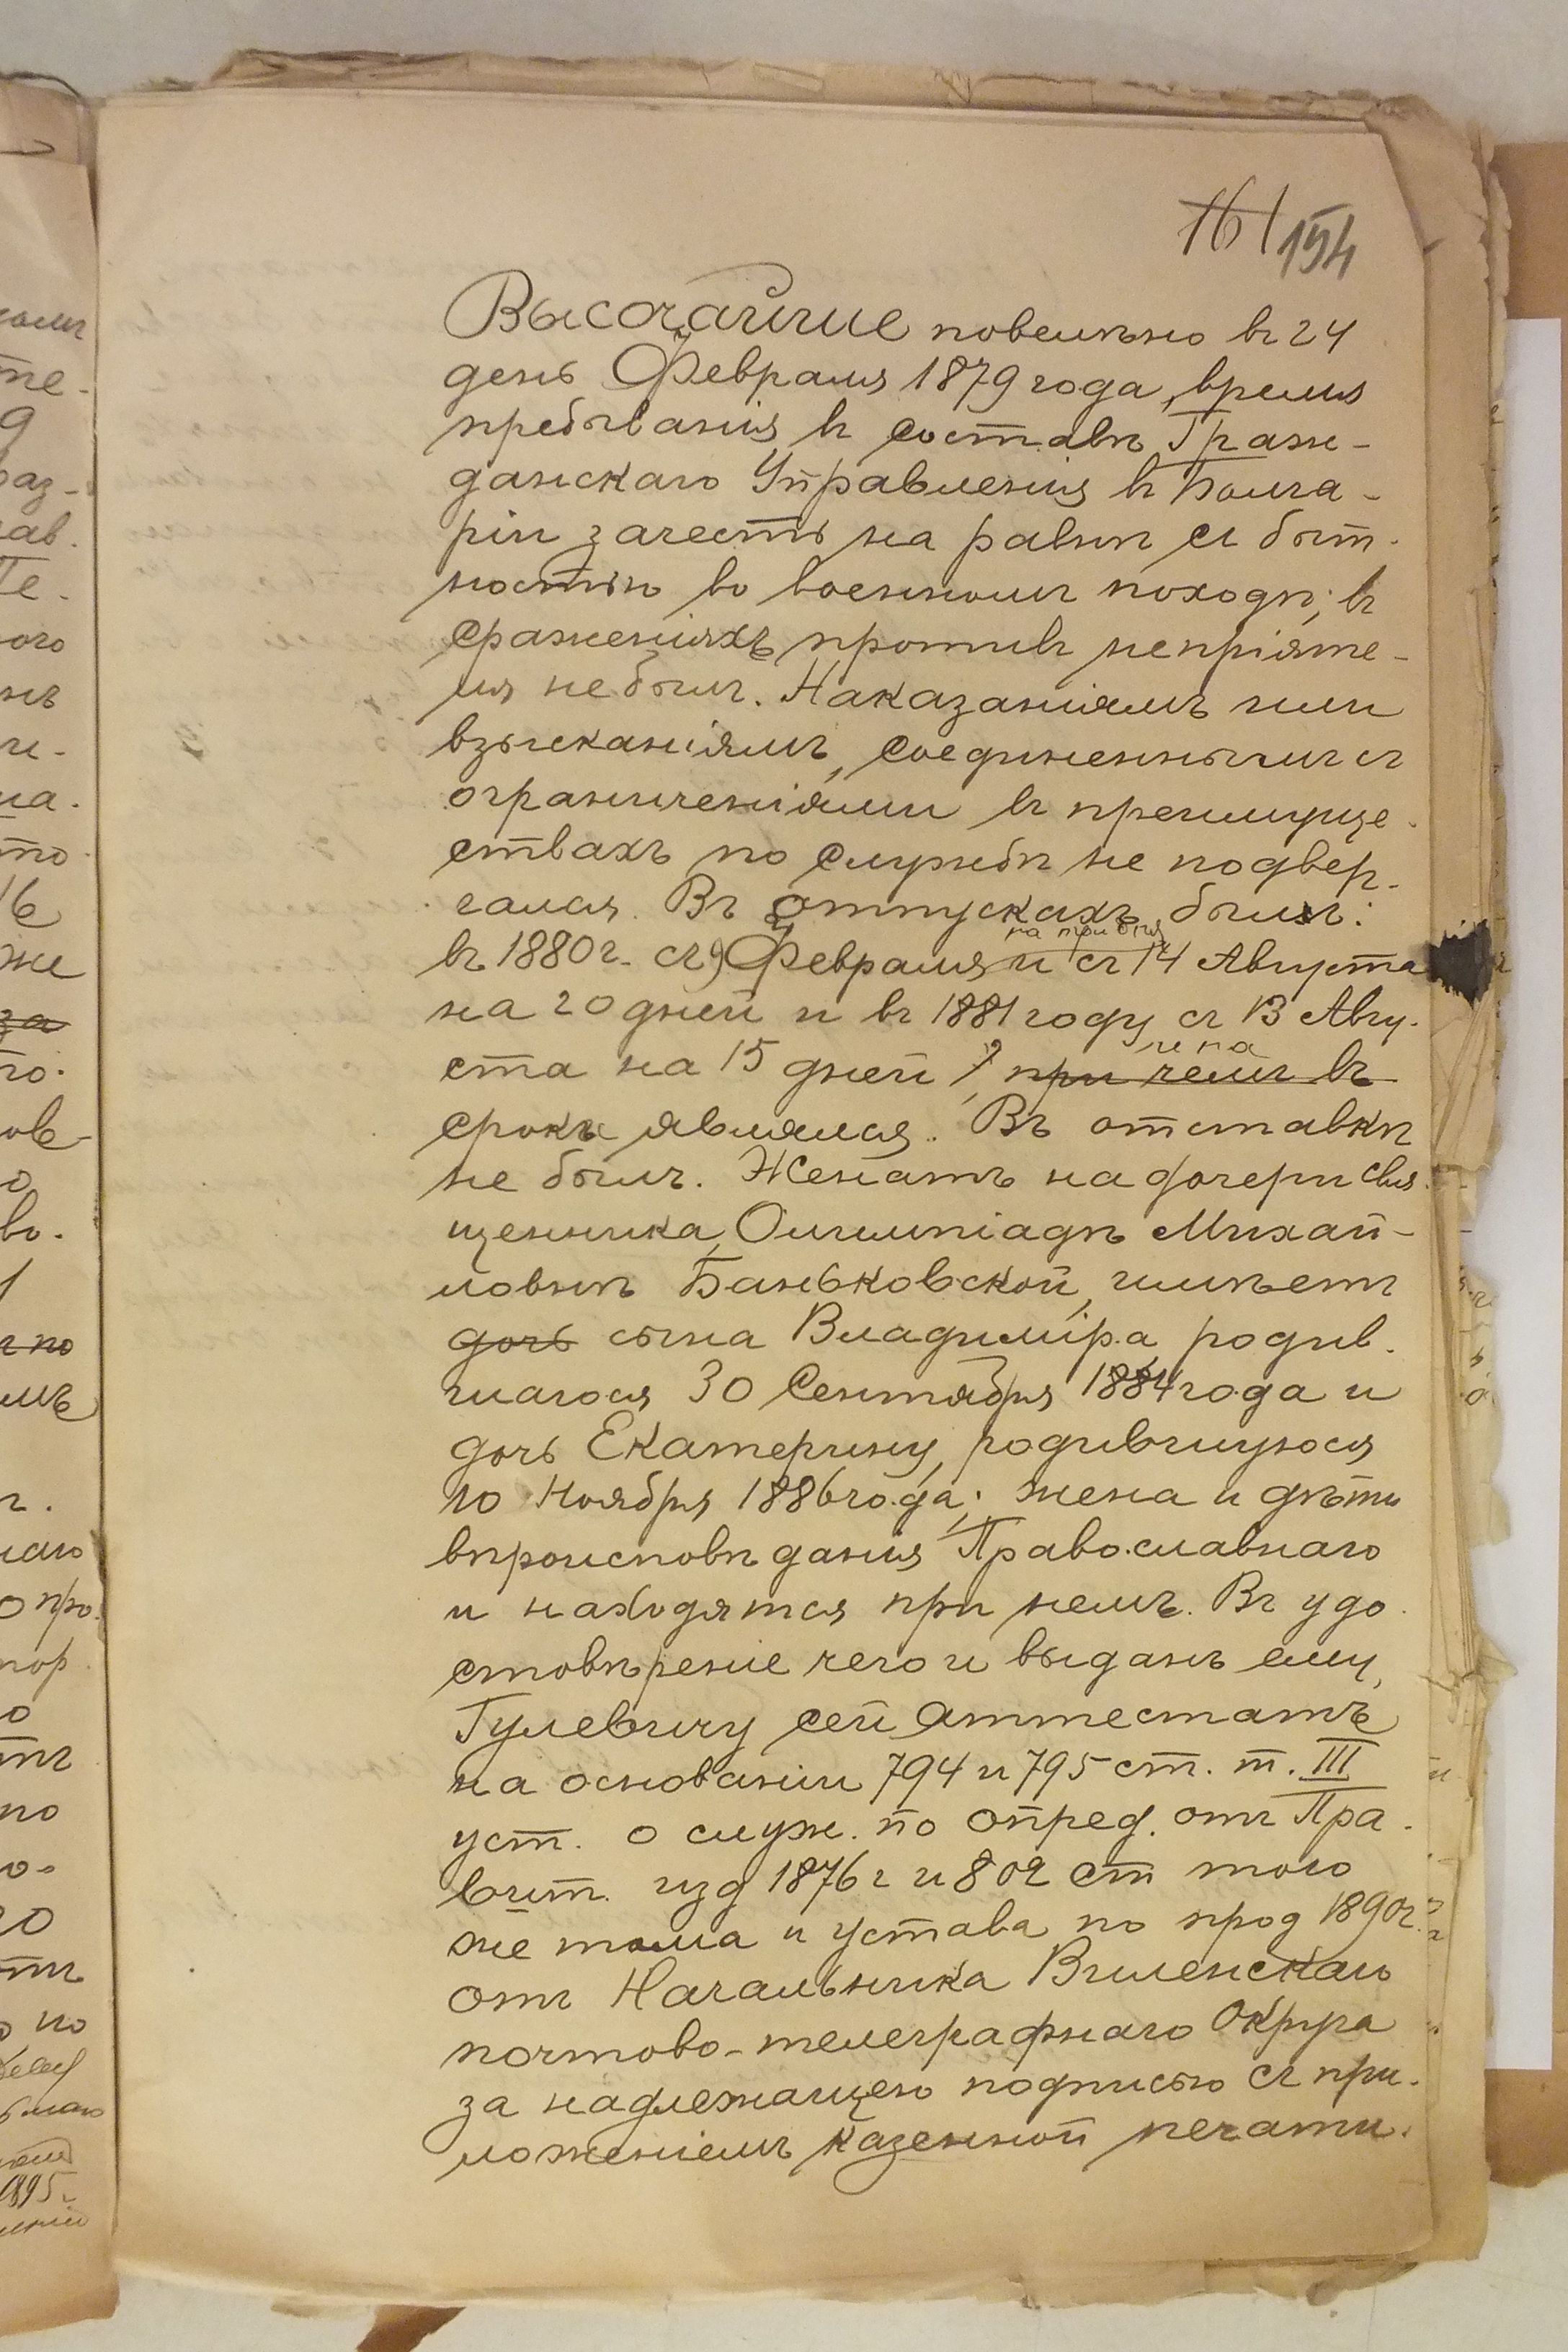 161 194
Высочайше повелѣно въ 24
день Февраля 1879 года, время
пребыванія въ составѣ Граж-
данскаго Управленія въ Болга-
ріи зачесть на равнѣ съ быт-
ностью во военномъ походѣ; въ
сраженіяхъ противъ непріяте-
ля не былъ. Наказаніямъ или
взысканіямъ, соединеннымъ съ
ограниченіями въ преимуще-
ствахъ по службѣ не подвер-
гался. Въ отпускахъ былъ:
на три дня
въ 1880 г. съ 9 Февраля и съ 14 Августа
на 20 дней и въ 1881 году съ 13 Авгу-
ста на 15 дней, и на при чемъ въ
срокъ являлся. Въ отставкѣ
не былъ. Женатъ на дочери свя-
щенника, Олимпіадѣ Михай-
ловнѣ Баньковской, имѣетъ
дочь сына Владиміра родив-
шагося 30 Сентября 1884 года и
дочь Екатерину, родившуюся
10 Ноября 1886 года; жена и дѣти
вѣроисповѣданія Православнаго
и находятся при немъ. Въ удо-
стовѣреніе чего и выданъ ему,
Гулевичу сей Аттестатъ
на основаніи 794 и 795 ст. т. III
уст. о служ. по опред. отъ Пра-
вит. изд 1876 г и 802 ст того
же тома и устава по прод 1890 г.
отъ Начальника Виленскаго
почтово-телеграфнаго Округа
за надлежащею подписью съ при-
ложеніемъ казенной печати.